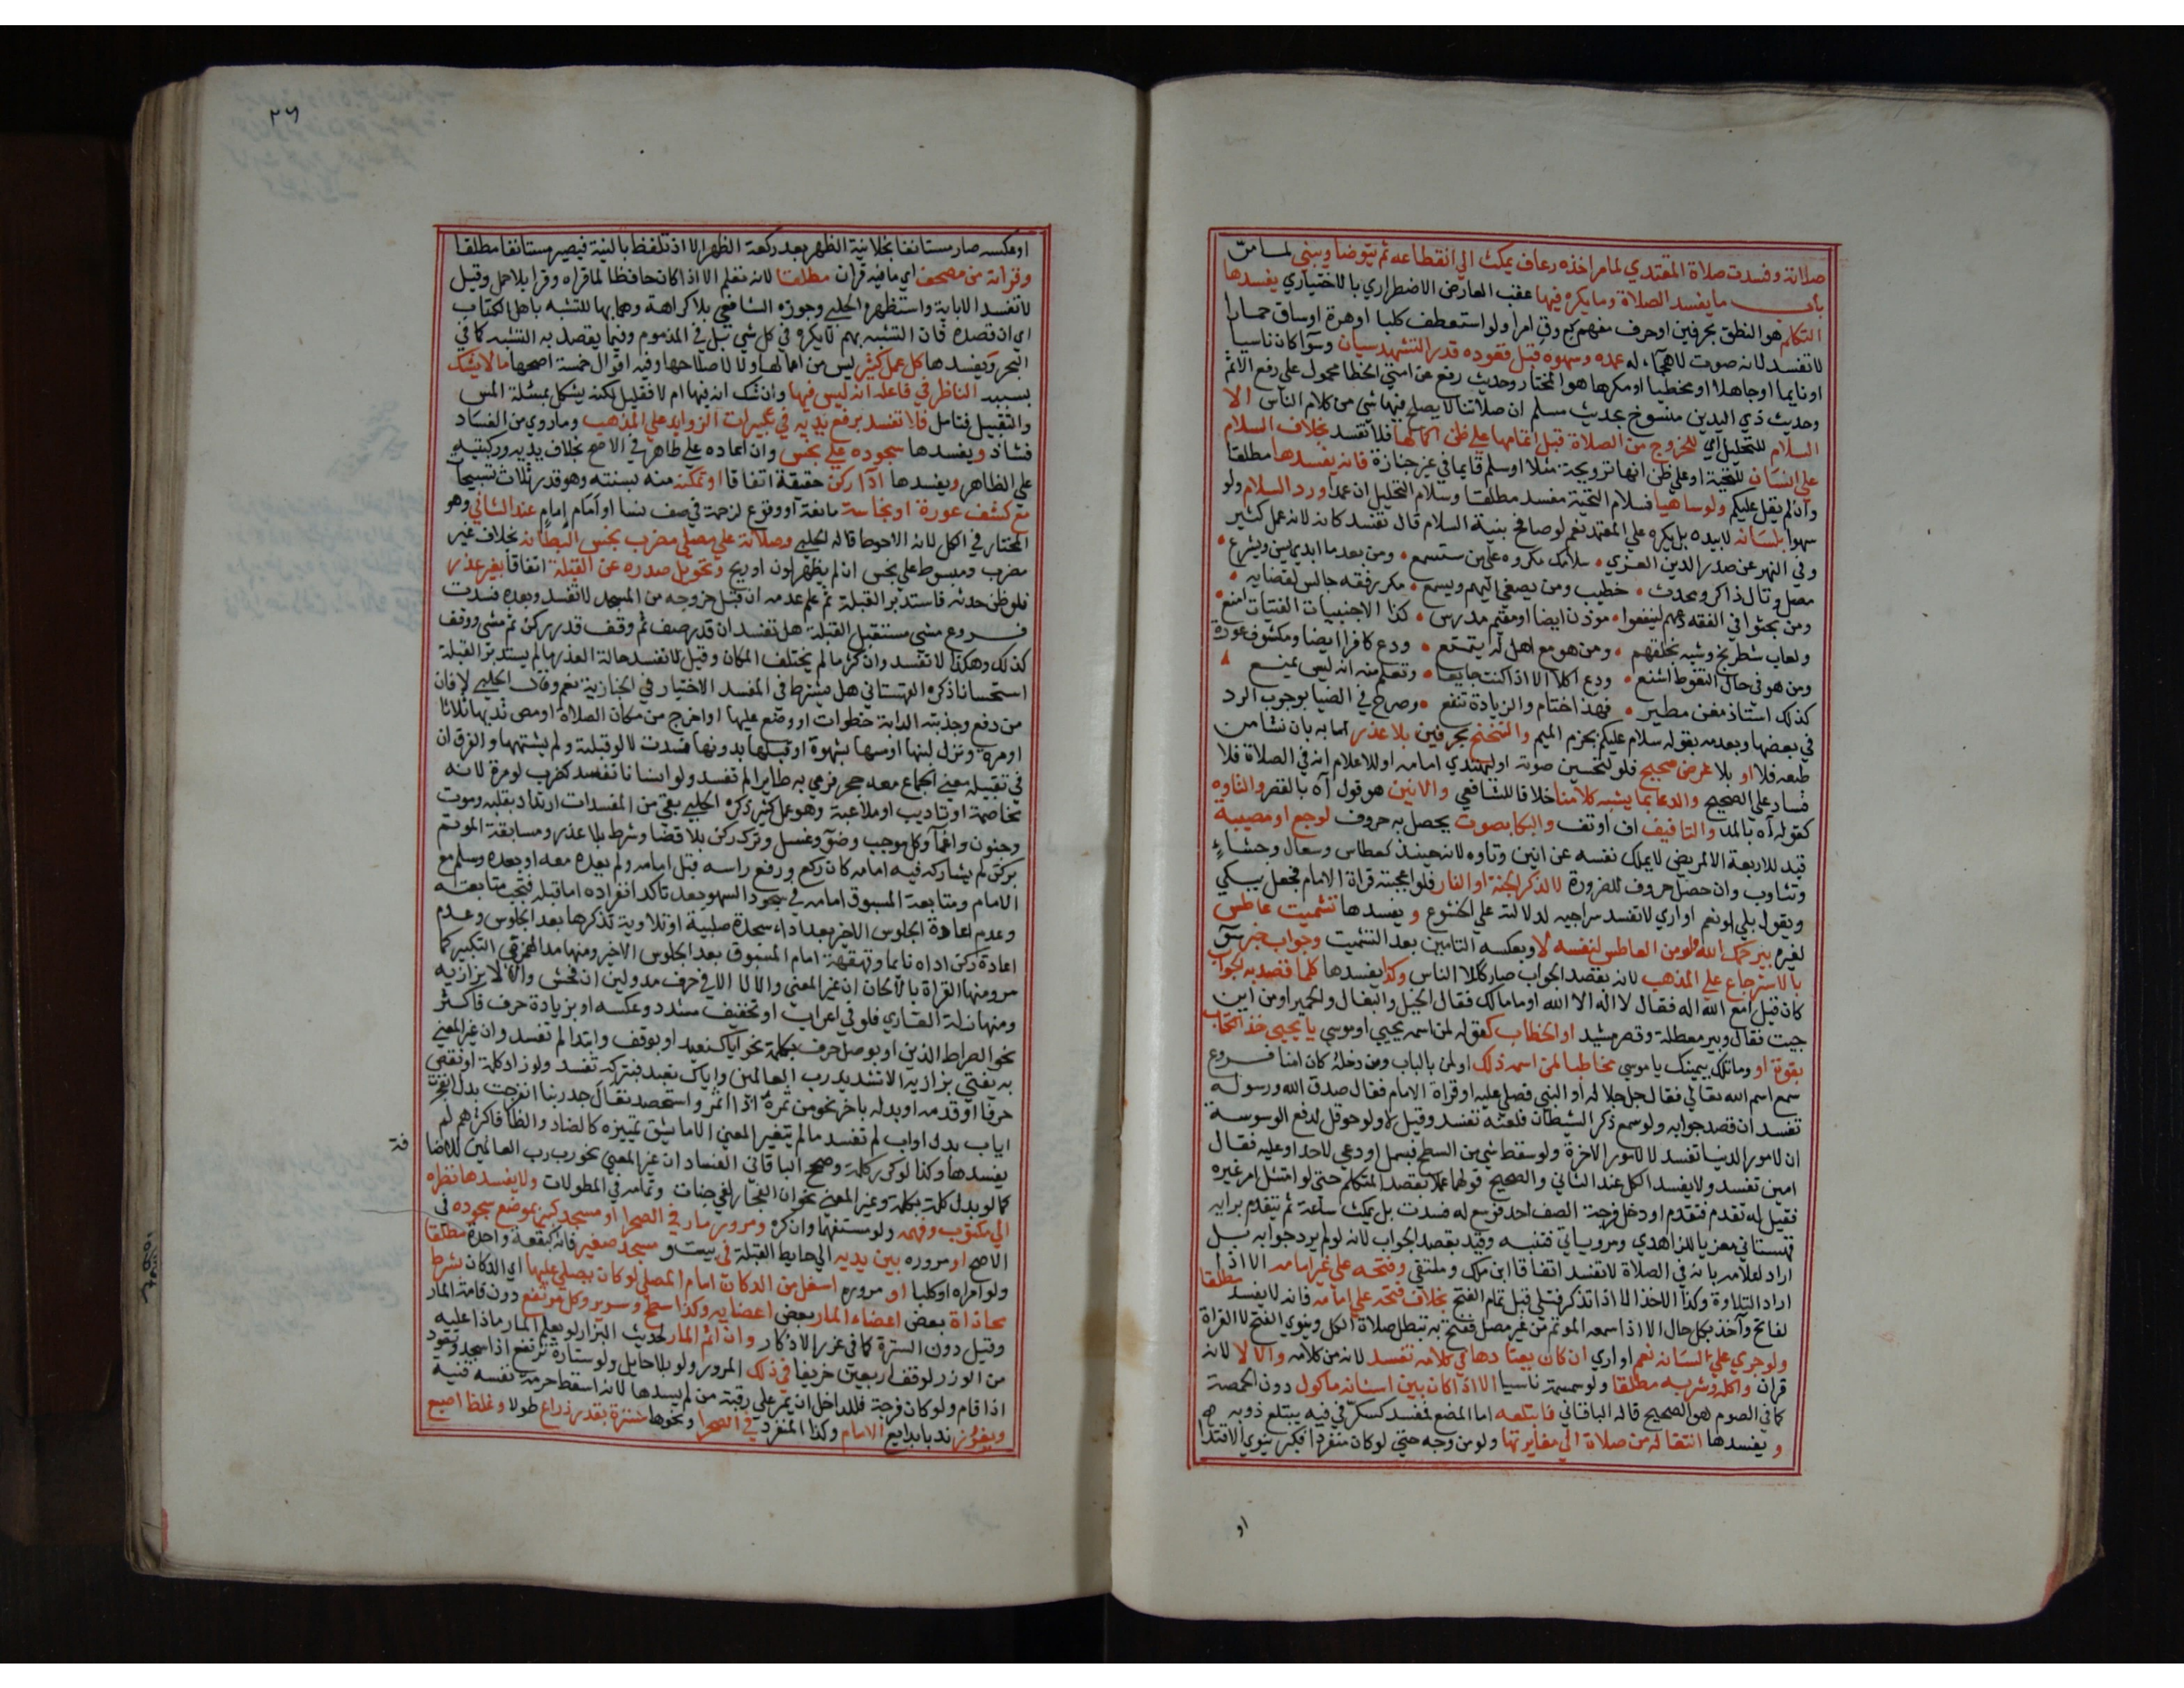 صلاته وفسدت صلاة المقتدي لمامر اخذه رعاف يمكث الي انقطاعه ثم يتوضا ويبني لما مر
باب ما يفسد الصلاة وما يكره فيها عقب العارض الاضطراري بالاختياري يفسدها
التكلم هو النطق بحرفين او حرف مفهم كع وق امرا ولو استعطف كلبا او هرة او ساق حمارا
لا تفسد لانه صوت لا هجآء له عمده وسهوه قبل قعوده قدر التشهد سيان وسوآ كان ناسيا
او نايما او جاهلا او مخطيا او مكرها هو المختار وحديث رفع عن امتي الخطا محمول على رفع الاثم
وحديث ذي اليدين منسوخ بحديث مسلم ان صلاتنا لا يصلح فيها شي من كلام الناس الا
السلام للتحليل اي للخروج من الصلاة قبل اتمامها على ظن اكمالها فلا تفسد بخلاف السلام
على انسان للتحية او على ظن انها ترويحة مثلا او سلم قايما في غير جنازة فانه يفسدها مطلقا
وان لم يقل عليكم ولو ساهيا فسلام التحية مفسد مطلقا وسلام التحليل ان عمدا ورد السلام ولو
سهوا بلسانه لا بيده بل يكره علي المعتمد نعم لو صافح بنية السلام قال تفسد كانه لانه عمل كثير
وفي النهر عن صدر الدين الغزي • سلامك مكروه على من ستسمع • ومن بعد ما ابدي يسن ويشرع •
مصل وتال ذاكر ومحدث • خطيب ومن يصغي اليهم ويسمع • مكرر فقه جالس لقضايه •
ومن بحثوا في الفقه دعهم لينفعوا • موذن ايضا او مقيم مدرس • كذا الاجنبيات الفتيات امنع •
ولعاب شطرنج وشبه بخلقهم • ومن هو مع اهل له يتمتع • ودع كافرا ايضا ومكشوف عورة
ومن هو في حال التغوط اشنع • ودع اكلا الا اذا كنت جايعا • وتعلم منه انه ليس يمنع
كذلك استاذ مغن مطير • فهذا ختام والزيادة تنفع • وصرح في الضيا بوجوب الرد
في بعضها وبعدمه بقوله سلام عليكم بجزم الميم والتنحنح بحرفين بلا عذر اما به بان نشا من
طبعه فلا او بلا غرض صحيح فلو لتحسين صوته او ليهتدي امامه او للاعلام انه في الصلاة فلا
فساد على الصحيح والدعا بما يشبه كلامنا خلافا للشافعي والانين هو قول آه بالقصر والتاوه
كقوله آه بالمد والتافيف اف او تف والبكا بصوت يحصل به حروف لوجع او مصيبة
قيد للاربعة الا لمريض لا يملك نفسه عن انين وتاوه لانه حينئذ كعطاس وسعال وجشاء
وتثاوب وان حصل حروف للضرورة لا لذكر الجنة او النار فلو اعجبته قراة الامام فجعل يبكي
ويقول بلي او نعم او اري لا تفسد سراجيه لدلالته على الخشوع و يفسدها تشميت عاطس
لغيره بيرحمك الله ولو من العاطس لنفسه لا وبعكسه التامين بعد التشميت وجواب خبر سوء
بالاسترجاع علي المذهب لانه بقصد الجواب صار كلام الناس وكذا يفسدها كلما قصد به الجواب
كان قيل امع الله اله فقال لا اله الا الله او ما مالك فقال الخيل والبغال والحمير او من اين
جيت فقال وبير معطلة وقصر مشيد او الخطاب كقوله لمن اسمه يحيي او موسي يا يحيي خذ الكتاب
بقوة او وما تلك بيمينك يا موسي مخاطبا لمن اسمه ذلك او لمن بالباب ومن دخله كان امنا فروع
سمع اسم الله تعالي فقال جل جلاله او النبي فصلي عليه او قراة الامام فقال صدق الله ورسوله
تفسد ان قصد جوابه ولو سمع ذكر الشيطان فلعنه تفسد وقيل لا ولو حوقل لدفع الوسوسة
ان لامور الدنيا تفسد لا لامور الاخرة ولو سقط شي من السطح فبسمل او دعي لاحد او عليه فقال
امين تفسد ولا يفسد الكل عند الثاني والصحيح قولهما عملا بقصد المتكلم حتي لو امتثل امر غيره
فقيل له تقدم فتقدم او دخل فرجة الصف احد فوسع له فسدت بل يمكث ساعة ثم يتقدم برايه
قهستاني معزيا للزاهدي ومر وياتي فتنبه وقيد بقصد الجواب لانه لو لم يرد جوابه بل
اراد اعلامه بانه في الصلاة لا تفسد اتفاقا ابن ملك وملتقي وفتحه علي غير امامه الا اذا
اراد التلاوة وكذا الاخذ الا اذا تذكر فتلي قبل تمام الفتح بخلاف فتحه علي امامه فانه لا يفسد مطلقا
لفاتح وآخذ بكل حال الا اذا سمعه الموتم من غير مصل ففتح به تبطل صلاة الكل وينوي الفتح لا القراة
ولو جري علي لسانه نعم او اري ان كان يعتادها في كلامه تفسد لانه من كلامه والا لا لانه
قران واكله وشربه مطلقا ولو سمسمة ناسيا الا اذا كان بين اسنانه ماكول دون الحمصة
كما في الصوم هو الصحيح قاله الباقاني فابتلعه اما المضغ لمفسد كسكر في فيه يبتلع ذوبه
و يفسدها انتقاله من صلاة الي مغايرتها ولو من وجه حتي لو كان منفردا فكبر ينوي الاقتدا
او
او عكسه صار مستانفا بخلاف نية الظهر بعد ركعة الظهر الا اذ تلفظ بالنية فيصير مستانفا مطلقا
وقراته من مصحف اي ما فيه قران مطلقا لانه تعلم الا اذا كان حافظا لما قراه وقرا بلا حمل وقيل
لا تفسد الا باية واستظهره الحلبي وجوزه الشافعي بلا كراهة وهما بها للتشبه باهل الكتاب
اي ان قصده فان التشبه بهم لا يكره في كل شي بل في المذموم وفيما يقصد به التشبه كما في
البحر ويفسدها كل عمل كثير ليس من اعمالها ولا لاصلاحها وفيه اقوال خمسة اصحها ما لا يشك
بسببه الناظر في فاعله انه ليس فيها وان شك انه فيها ام لا فقليل لكنه يشكل بمسئلة المس
والتقبيل فتامل فلا تفسد برفع يديه في تكبيرات الزوايد علي المذهب وما روي من الفساد
فشاذ ويفسدها سجوده على نجس وان اعاده على طاهر في الاصح بخلاف يديه وركبتيه
علي الظاهر ويفسدها اداركن حقيقة اتفاقا او تمكنه منه بسنته وهو قدر ثلاث تسبيحات
مع كشف عورة او نجاسة مانعة او وقوع لزحمة في صف نسا او امام امام عند الثاني وهو
المختار في الكل لانه الاحوط قاله الحلبي وصلاته علي مصلي مضرب نجس البطانه بخلاف غير
مضرب ومبسوط علي نجس ان لم يظهر لون او ريح وتحويل صدره عن القبلة اتفاقا بغير عذر
فلو ظن حدثه فاستدبر القبلة ثم علم عدمه ان قبل خروجه من المسجد لا تفسد وبعده فسدت
فروع مشي مستقبل القبلة هل تفسد ان قدر صف ثم وقف قدر ركن ثم مشي ووقف
كذلك وهكذا لا تفسد وان كثر ما لم يختلف المكان وقيل لا تفسد حالة العذر ما لم يستدبر القبلة
استحسانا ذكره القهستاني هل يشترط في المفسد الاختيار في الخبازية نعم وقال الحلبي لا فان
من دفع وجذبته الدابة خطوات او وضع عليها او اخرج من مكان الصلاة او مص ثديها ثلاثا
او مرة ونزل لبنها او مسها بشهوة او قبلها بدونها فسدت لا لو قبلته ولم يشتهها والفرق ان
في تقبيله معني الجماع معه حجر فرمي به طايرا لم تفسد ولو انسانا تفسد كضرب لو مرة لانه
مخاصمة او تاديب او ملاعبة وهو عمل كثير ذكره الحلبي بقي من المفسدات ارتداد بقلبه وموت
وجنون واغما وكل موجب وضؤ وغسل وترك ركن بلا قضا وشرط بلا عذر ومسابقة الموتم
بركن لم يشاركه فيه امامه كان ركع ورفع راسه قبل امامه ولم يعده معه او بعده وسلم مع
الامام ومتابعة المسبوق امامه في سجود السهو بعد تاكد انفراده اما قبله فتجب متابعته
وعدم اعادة الجلوس الاخير بعد اداء سجدة صلبية او تلاوية تذكرها بعد الجلوس وعدم
اعادة ركن اداه نايما وقهقهة امام المسبوق بعد الجلوس الاخير ومنها مد الهمز في التكبير كما
مر ومنها القراة بالالحان ان غير المعني والا لا الا في حرف مد ولين ان فحش والا لا بزازيه
ومنها زلة القاري فلو في اعراب او تخفيف مشدد وعكسه او بزيادة حرف فاكثر
نحو الصراط الذين او بوصل حرف بكلمة نحو اياك نعبد او بوقف وابتدا لم تفسد وان غير المعني
به يفتي بزازيه الا تشديد رب العالمين واياك نعبد فبتركه تفسد ولو زاد كلمة او نقص
حرفا او قدمه او بدله باخر نحو من ثمره اذا اثمر واستحصد تعالَ جد ربنا انفرجت بدل انفجرت
اياب بدل اواب لم تفسد ما لم يتغير المعني الا ما يشق تمييزه كالضاد والظا فاكثرهم لم
يفسدها وكذا لو كرر كلمة وصحح الباقاني الفساد ان غير المعني نحو رب رب العالمين للاضافة
كما لو بدل كلمة بكلمة وغير المعني نحو ان الفجار لفي جنات وتمامه في المطولات ولا يفسدها نظره
الي مكتوب وفهمه ولو مستفهما وان كره ومرور مار في الصحرا او مسجد كبير بموضع سجوده في
الاصح او مروره بين يديه الي حايط القبلة في بيت و مسجد صغير فانه كبقعة واحدة مطلقا
ولو امراه او كلبا او مروره اسفل من الدكان امام المصلي لو كان يصلي عليها اي الدكان بشرط
محاذاة بعض اعضاء المار بعض اعضايه وكذا سطح وسرير وكل مرتفع دون قامة المار
وقيل دون السترة كما في غرر الاذكار وان اثم المار لحديث البزار لو يعلم المار ماذا عليه
من الوزر لوقف اربعين خريفا في ذلك المرور ولو بلا حايل ولو ستارة ترتفع اذا سجد وتعود
اذا قام ولو كان فرجة فللداخل ان يمر على رقبة من لم يسدها لانه اسقط حرمة نفسه فتنبه
ويغرز ندبا بدايع الامام وكذا المنفرد في الصحرا ونحوها سترة بقدر ذراع طولا وغلظ اصبع